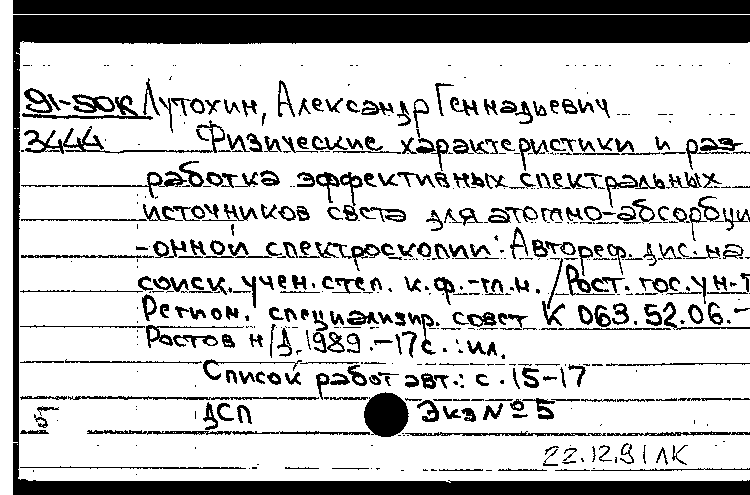 91-50К Лутохин, Александр Геннадьевич
3444 Физические характеристики и раз-
работка эффективных спектральных
источников света для атомно-абсорбци
-онной спектроскопии: Автореф. дис. на
соиск. учен. степ. к.ф.-м.н. / Рост. гос. ун-т
Регион. специализир. совет К 063.52.06.-
Ростов н/Д, 1989.-17с.: ил.
Список работ авт.: с.15-17
ДСП Экз № 5
22.12.91 ЛК